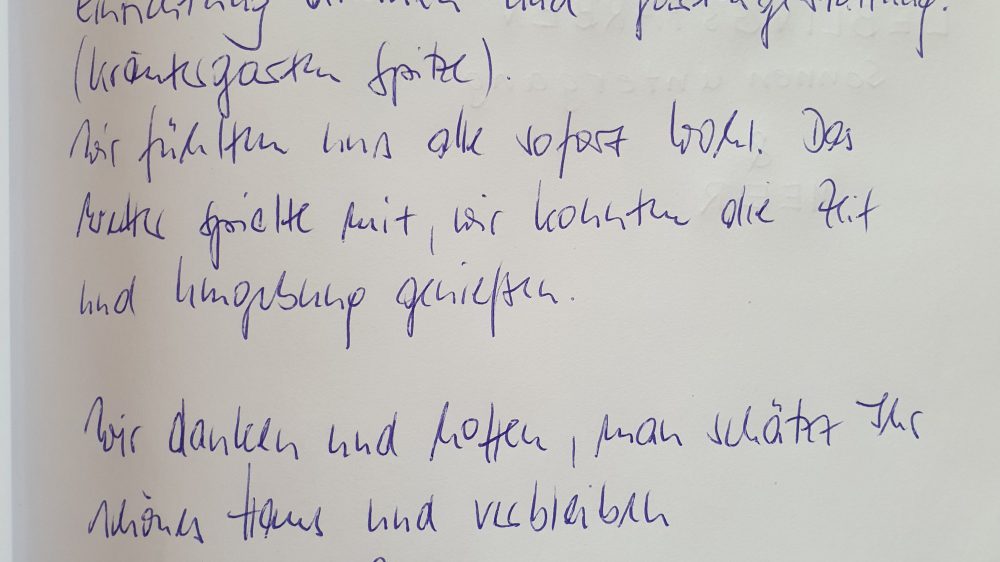 und
(Kräutergarten Spitze).
Wir fühlten uns alle sofort wohl. Das
Wetter spielte mit, wir konnten die Zeit
und Umgebung genießen.
Wir danken und hoffen, man schätzt Ihr
schönes Haus und verbleiben